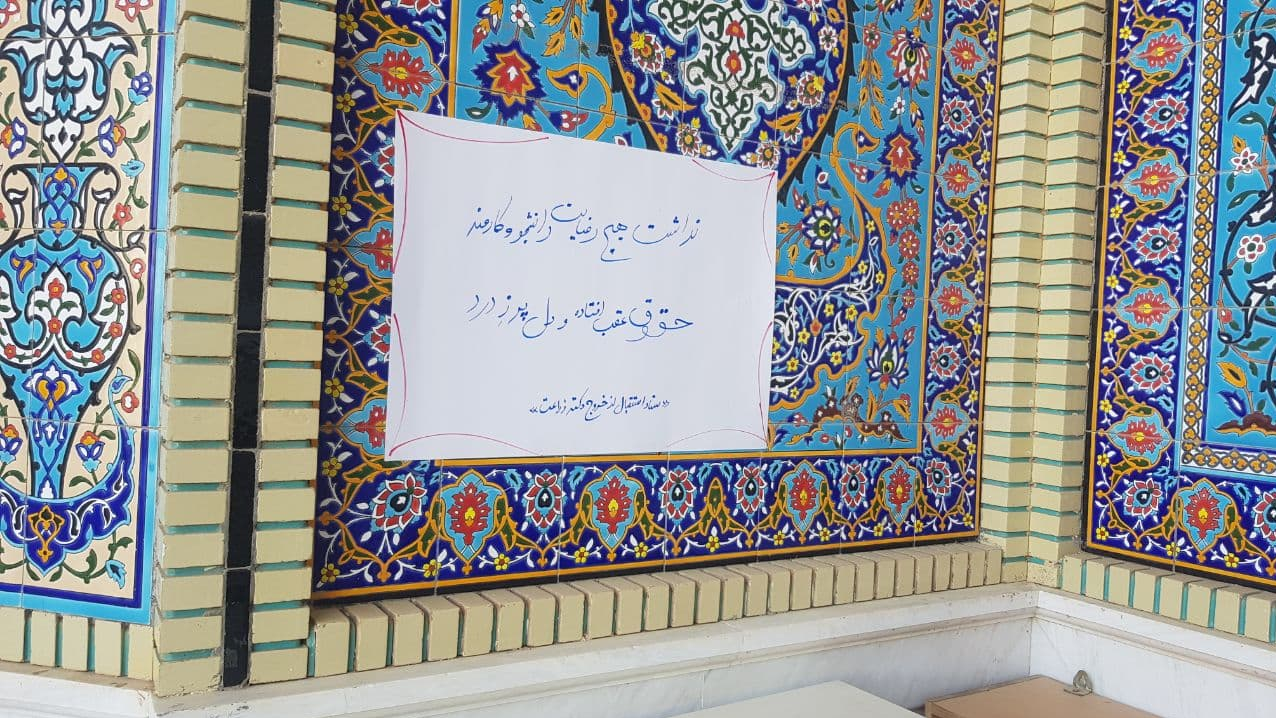 نداشت هیچ رضایت دانشجو و کارمند
حقوق عقب افتاده و دل پر ز درد
«ستاد استقبال از خروج دکتر زراعت»